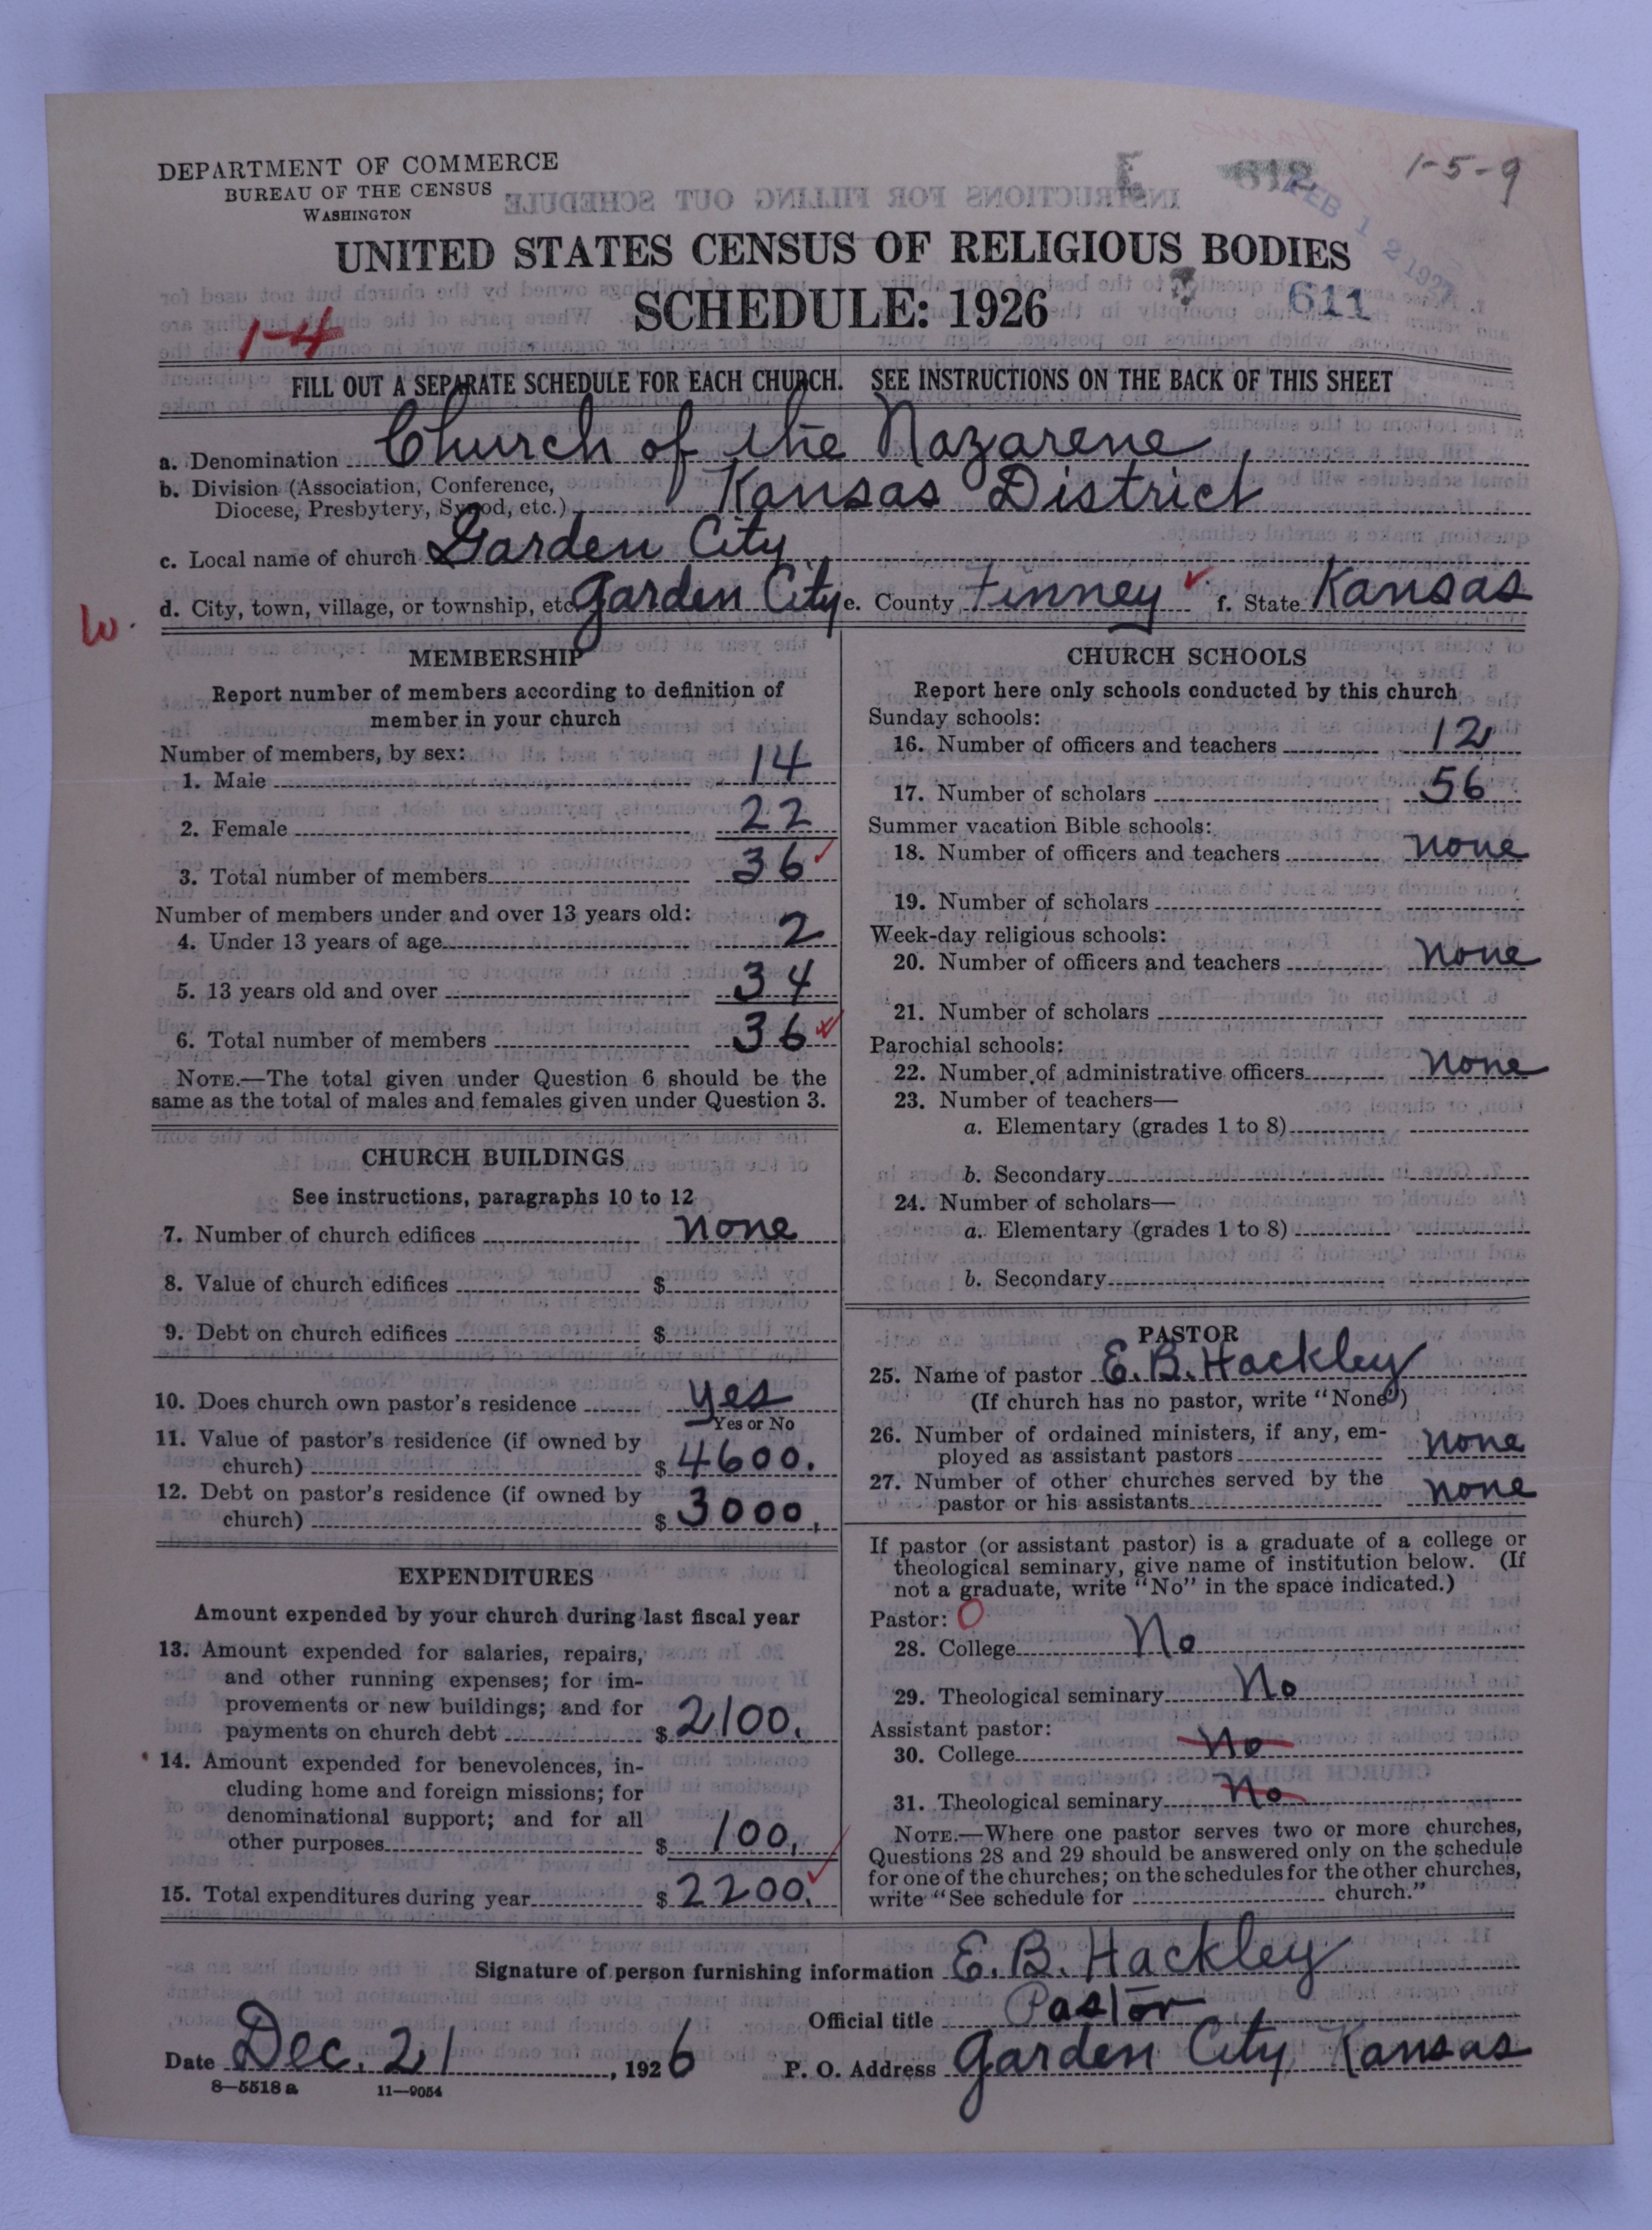 DEPARTMENT OF COMMERCE
BUREAU OF THE CENSUS
WASHINGTON
1-5-9
FEB 12 1927
612
611
UNITED STATES CENSUS OF RELIGIOUS BODIES
SCHEDULE: 1926
1-4
FILL OUT A SEPARATE SCHEDULE FOR EACH CHURCH. SEE INSTRUCTIONS ON THE BACK OF THIS SHEET
a. Denomination Church of the Nazarene
b. Division (Association, Conference,
Diocese, Presbytery, Synod, etc.) Kansas District
c. Local name of church Garden City
d. City, town, village, or township, etc. Garden City e. County Finney f. State Kansas
W.
MEMBERSHIP
Report number of members according to definition of
member in your church
Number of members, by sex:
1. Male 14
2. Female 22
3. Total number of members 36
Number of members under and over 13 years old:
4. Under 13 years of age 2
5. 13 years old and over 34
6. Total number of members 36
NOTE.—The total given under Question 6 should be the
same as the total of males and females given under Question 3.
CHURCH BUILDINGS
See instructions, paragraphs 10 to 12
7. Number of church edifices none
8. Value of church edifices $
9. Debt on church edifices $
10. Does church own pastor's residence yes
Yes or No
11. Value of pastor's residence (if owned by
church) $ 4600.
12. Debt on pastor's residence (if owned by
church) $ 3000.
EXPENDITURES
Amount expended by your church during last fiscal year
13. Amount expended for salaries, repairs,
and other running expenses; for im-
provements or new buildings; and for
payments on church debt $ 2100.
14. Amount expended for benevolences, in-
cluding home and foreign missions; for
denominational support; and for all
other purposes $ 100.
15. Total expenditures during year $ 2200.
CHURCH SCHOOLS
Report here only schools conducted by this church
Sunday schools:
16. Number of officers and teachers 12
17. Number of scholars 56
Summer vacation Bible schools:
18. Number of officers and teachers none
19. Number of scholars
Week-day religious schools:
20. Number of officers and teachers none
21. Number of scholars
Parochial schools:
22. Number of administrative officers none
23. Number of teachers—
a. Elementary (grades 1 to 8)
b. Secondary
24. Number of scholars—
a. Elementary (grades 1 to 8)
b. Secondary
PASTOR
25. Name of pastor E. B. Hackley
(If church has no pastor, write "None")
26. Number of ordained ministers, if any, em-
ployed as assistant pastors none
27. Number of other churches served by the
pastor or his assistants none
If pastor (or assistant pastor) is a graduate of a college or
theological seminary, give name of institution below. (If
not a graduate, write "No" in the space indicated.)
Pastor: O
28. College No
29. Theological seminary No
Assistant pastor:
30. College No
31. Theological seminary No
NOTE.—Where one pastor serves two or more churches,
Questions 28 and 29 should be answered only on the schedule
for one of the churches; on the schedules for the other churches,
write "See schedule for church."
Signature of person furnishing information E. B. Hackley
Official title Pastor
Date Dec. 21, 1926 P. O. Address Garden City Kansas
8—5518 a 11—9054